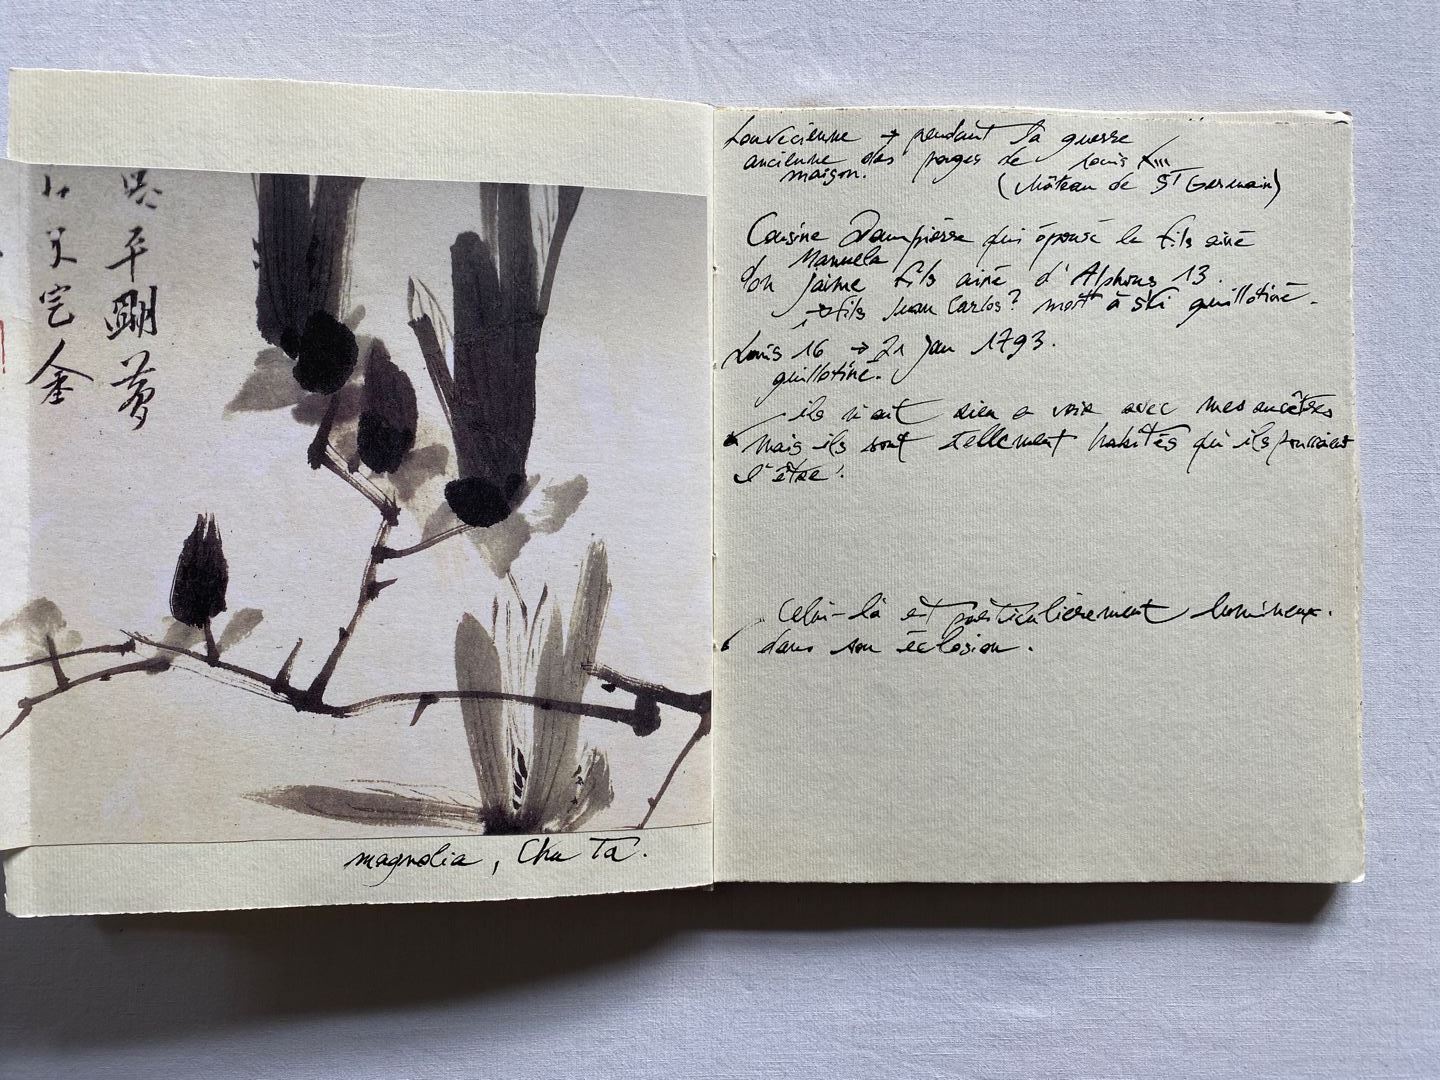 平剛夢
宅金
magnolia, Chu Ta.
Louvecienne → pendant la guerre
ancienne des pages de Louis XIII
maison.
(château de ST Germain)
Cousine Dampierre qui épouse le fils ainé
Manuela
Don Jaime fils ainé d'Alphons 13.
→ fils Juan Carlos? mort à ski guillotiné.
Louis 16 → 21 Jan 1793.
guillotiné.
ils n'ont rien a voir avec mes ancêtres
mais ils sont tellement habités qu'ils pourraient
l'être!
Celui-là est particulièrement lumineux.
dans son éclosion.